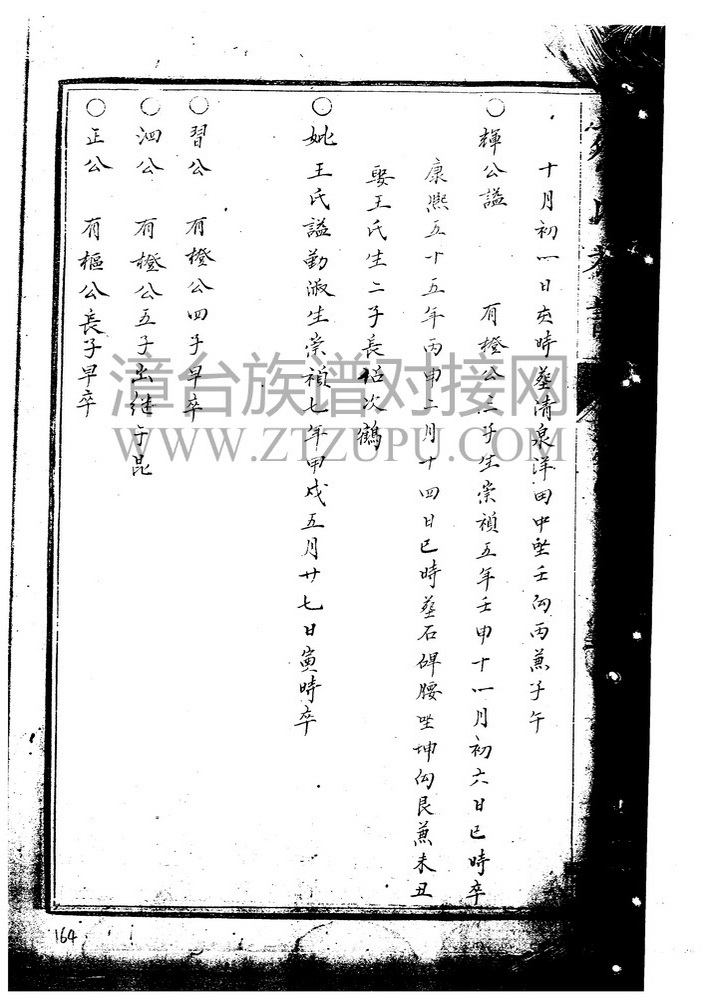 十月初一日亥時葬清泉洋田中坐壬向丙兼子午
○輝公謚　有橙公三子生崇禎五年壬申十一月初六日巳時卒
康熙五十五年丙申二月十四日巳時葬石碑腰坐坤向艮兼未丑
娶王氏生二子長佋次鶴
○妣王氏謚勤淑生崇禎七年甲戌五月廿七日寅時卒
○習公　有橙公四子早卒
○泗公　有橙公五子出继于昆
○正公　有樞公長子早卒
漳台族谱对接网
WWW.ZTZUPU.COM
164